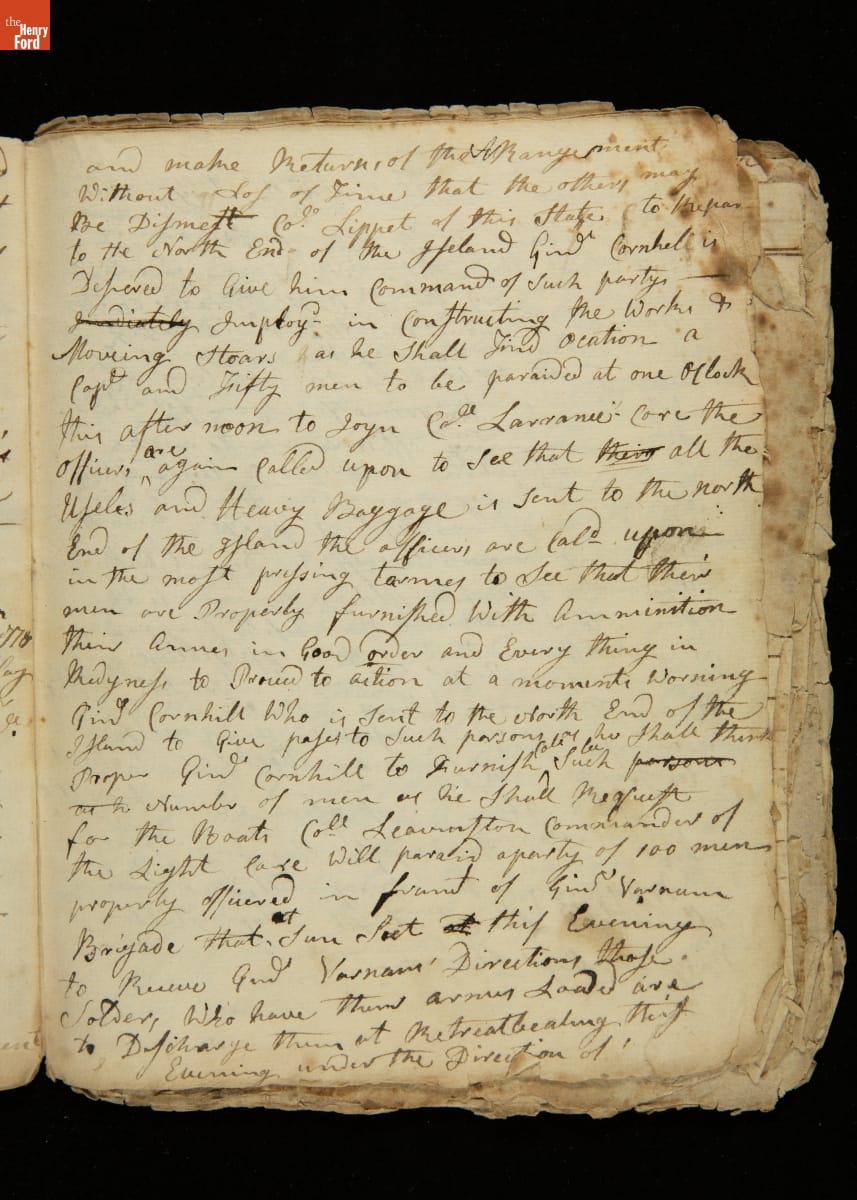 the
Henry
Ford
and make Return, of the ARangement
Without Los of Time that the others may
Be Dismest Col.º Lippet of this State to Repar
to the North End of the Island Ginˡ Cornhell is
Desiered to Give him Command of such partys
Imediately Imployᵈ in Constructing the Works &
Moveing Stoars as he Shall find ocation a
Capᵗ and Fifty men to be paraided at one Oclock
this after noon to Joyn Coˡˡ Larranceˢ Core the
officers are again Called upon to See that their all the
Useles and Heavy Baggage is sent to the north
End of the Island the officers are Calᵈ upon
in the most pressing tarmes to See that their
men are Properly furnished With Amminition
their Armes in Good order and Every thing in
Redyness to Proceed to action at a moments Worning
Ginˡ Cornhill Who is sent to the North End of the
Island to Give pases to Such parsons as he Shall think
Proper Ginˡ Cornhill to Furnish Such parsons
as h Number of men as he Shall Request
for the Boats Colˡ Leavinston Commander of
the Light Core Will paraid a party of 100 men
properly officered in frunt of Ginˡ Varnam
Brigade that at Sun Set at this Evening
to Receve Ginˡ Varnams Directions those
Solders Who have their armes Loaded are
to Discharge them at Retreat beating this
Evening under the Direction of